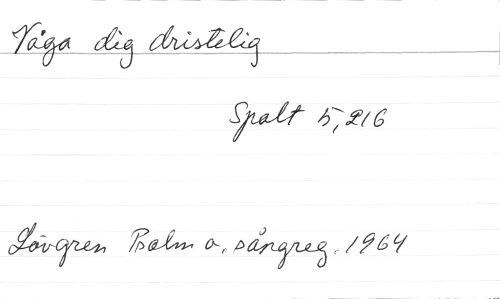 Våga dig dristelig
Spalt 5,216
Lövgren Psalm o. sångreg. 1964